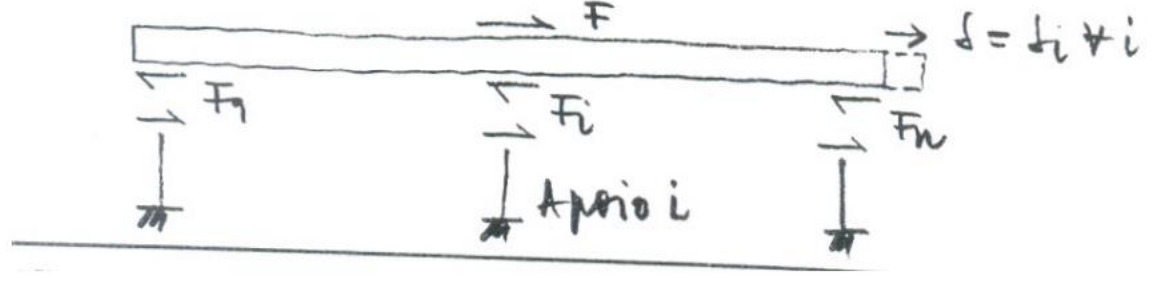 F
δ = δi ∀ i
F1
Fi
Fn
Apoio i